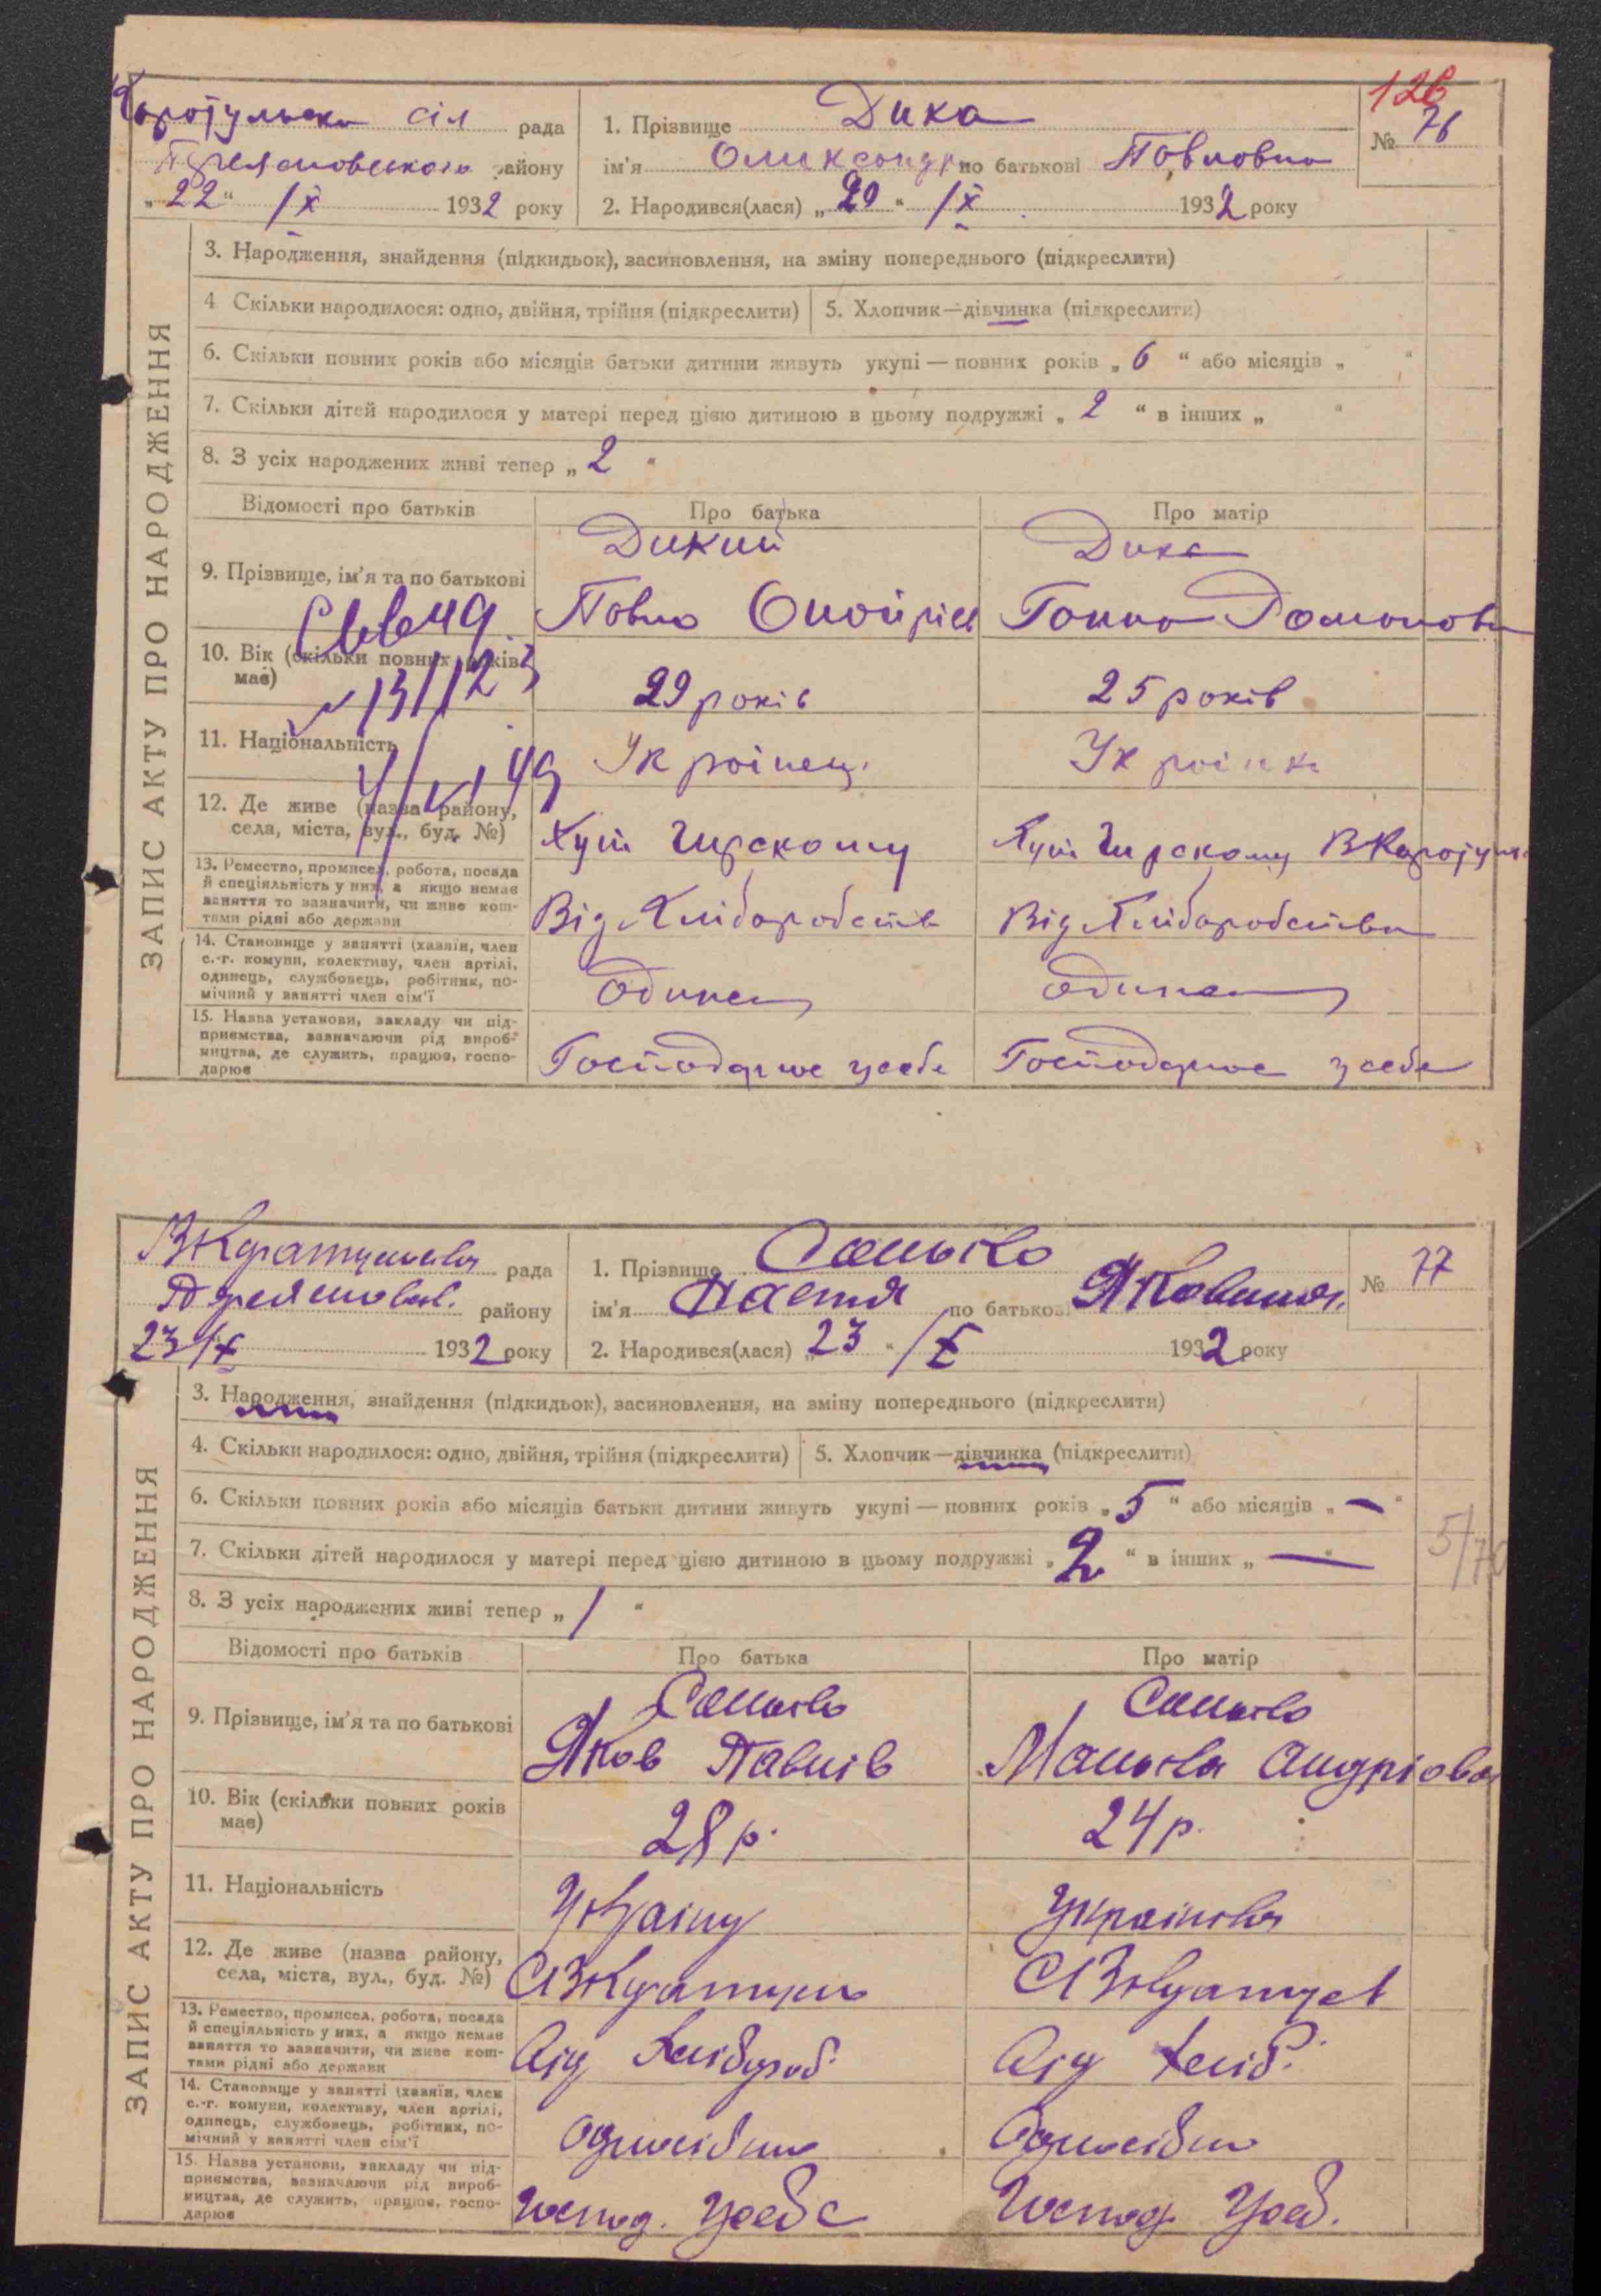 126
сіл рада
району
„ 22 “ /ІХ 1932 року
1. Прізвище Дика
ім'я Олександр по батькові Павловна
2. Народився(лася) „ 20 “ /ІХ 1932 року
№ 76
ЗАПИС АКТУ ПРО НАРОДЖЕННЯ
3. Народження, знайдення (підкидьок), засиновлення, на зміну попереднього (підкреслити)
4 Скільки народилося: одно, двійня, трійня (підкреслити)
5. Хлопчик—дівчинка (підкреслити)
6. Скільки повних років або місяців батьки дитини живуть укупі — повних років „ 6 “ або місяців „ “
7. Скільки дітей народилося у матері перед цією дитиною в цьому подружжі „ 2 “ в інших „ “
8. З усіх народжених живі тепер „ 2 “
Відомості про батьків Про батька Про матір
9. Прізвище, ім'я та по батькові
Дикий
Павло
Дика
Ганна
10. Вік (скільки повних років має)
29 років
25 років
11. Національність
Українец
Українка
12. Де живе (назва району,
села, міста, вул., буд. №)
Хут
Хут
13. Ремество, промисел, робота, посада
й спеціяльність у них, а якщо немає
заняття то зазначити, чи живе кош-
тами рідні або держави
Від Хліборобства
Від Хліборобства
14. Становище у занятті (хазяїн, член
с.-г. комуни, колективу, член артілі,
одинець, службовець, робітник, по-
мічний у занятті член сім'ї
одинец
одинец
15. Назва установи, закладу чи під-
приємства, зазначаючи рід вироб-
ництва, де служить, працює, госпо-
дарює
Господарює у себе
Господарює у себе
рада
району
23/Х 1932 року
1. Прізвище
ім'я Настя по батькові Яковлівна
2. Народився(лася) „ 23 “ /Х 1932 року
№ 77
ЗАПИС АКТУ ПРО НАРОДЖЕННЯ
3. Народження, знайдення (підкидьок), засиновлення, на зміну попереднього (підкреслити)
4. Скільки народилося: одно, двійня, трійня (підкреслити)
5. Хлопчик—дівчинка (підкреслити)
6. Скільки повних років або місяців батьки дитини живуть укупі — повних років „ 5 “ або місяців „ — “
7. Скільки дітей народилося у матері перед цією дитиною в цьому подружжі „ 2 “ в інших „ — “
8. З усіх народжених живі тепер „ 1 “
5/70
Відомості про батьків Про батька Про матір
9. Прізвище, ім'я та по батькові
Яков Павлів
Андріовна
10. Вік (скільки повних років має)
28 р.
24 р.
11. Національність
Українка
12. Де живе (назва району,
села, міста, вул., буд. №)
13. Ремество, промисел, робота, посада
й спеціяльність у них, а якщо немає
заняття то зазначити, чи живе кош-
тами рідні або держави
Від Хлібороб.
Від Хліб.
14. Становище у занятті (хазяїн, член
с.-г. комуни, колективу, член артілі,
одинець, службовець, робітник, по-
мічний у занятті член сім'ї
15. Назва установи, закладу чи під-
приємства, зазначаючи рід вироб-
ництва, де служить, працює, госпо-
дарює
Господ. у себе
Господ. у себ.